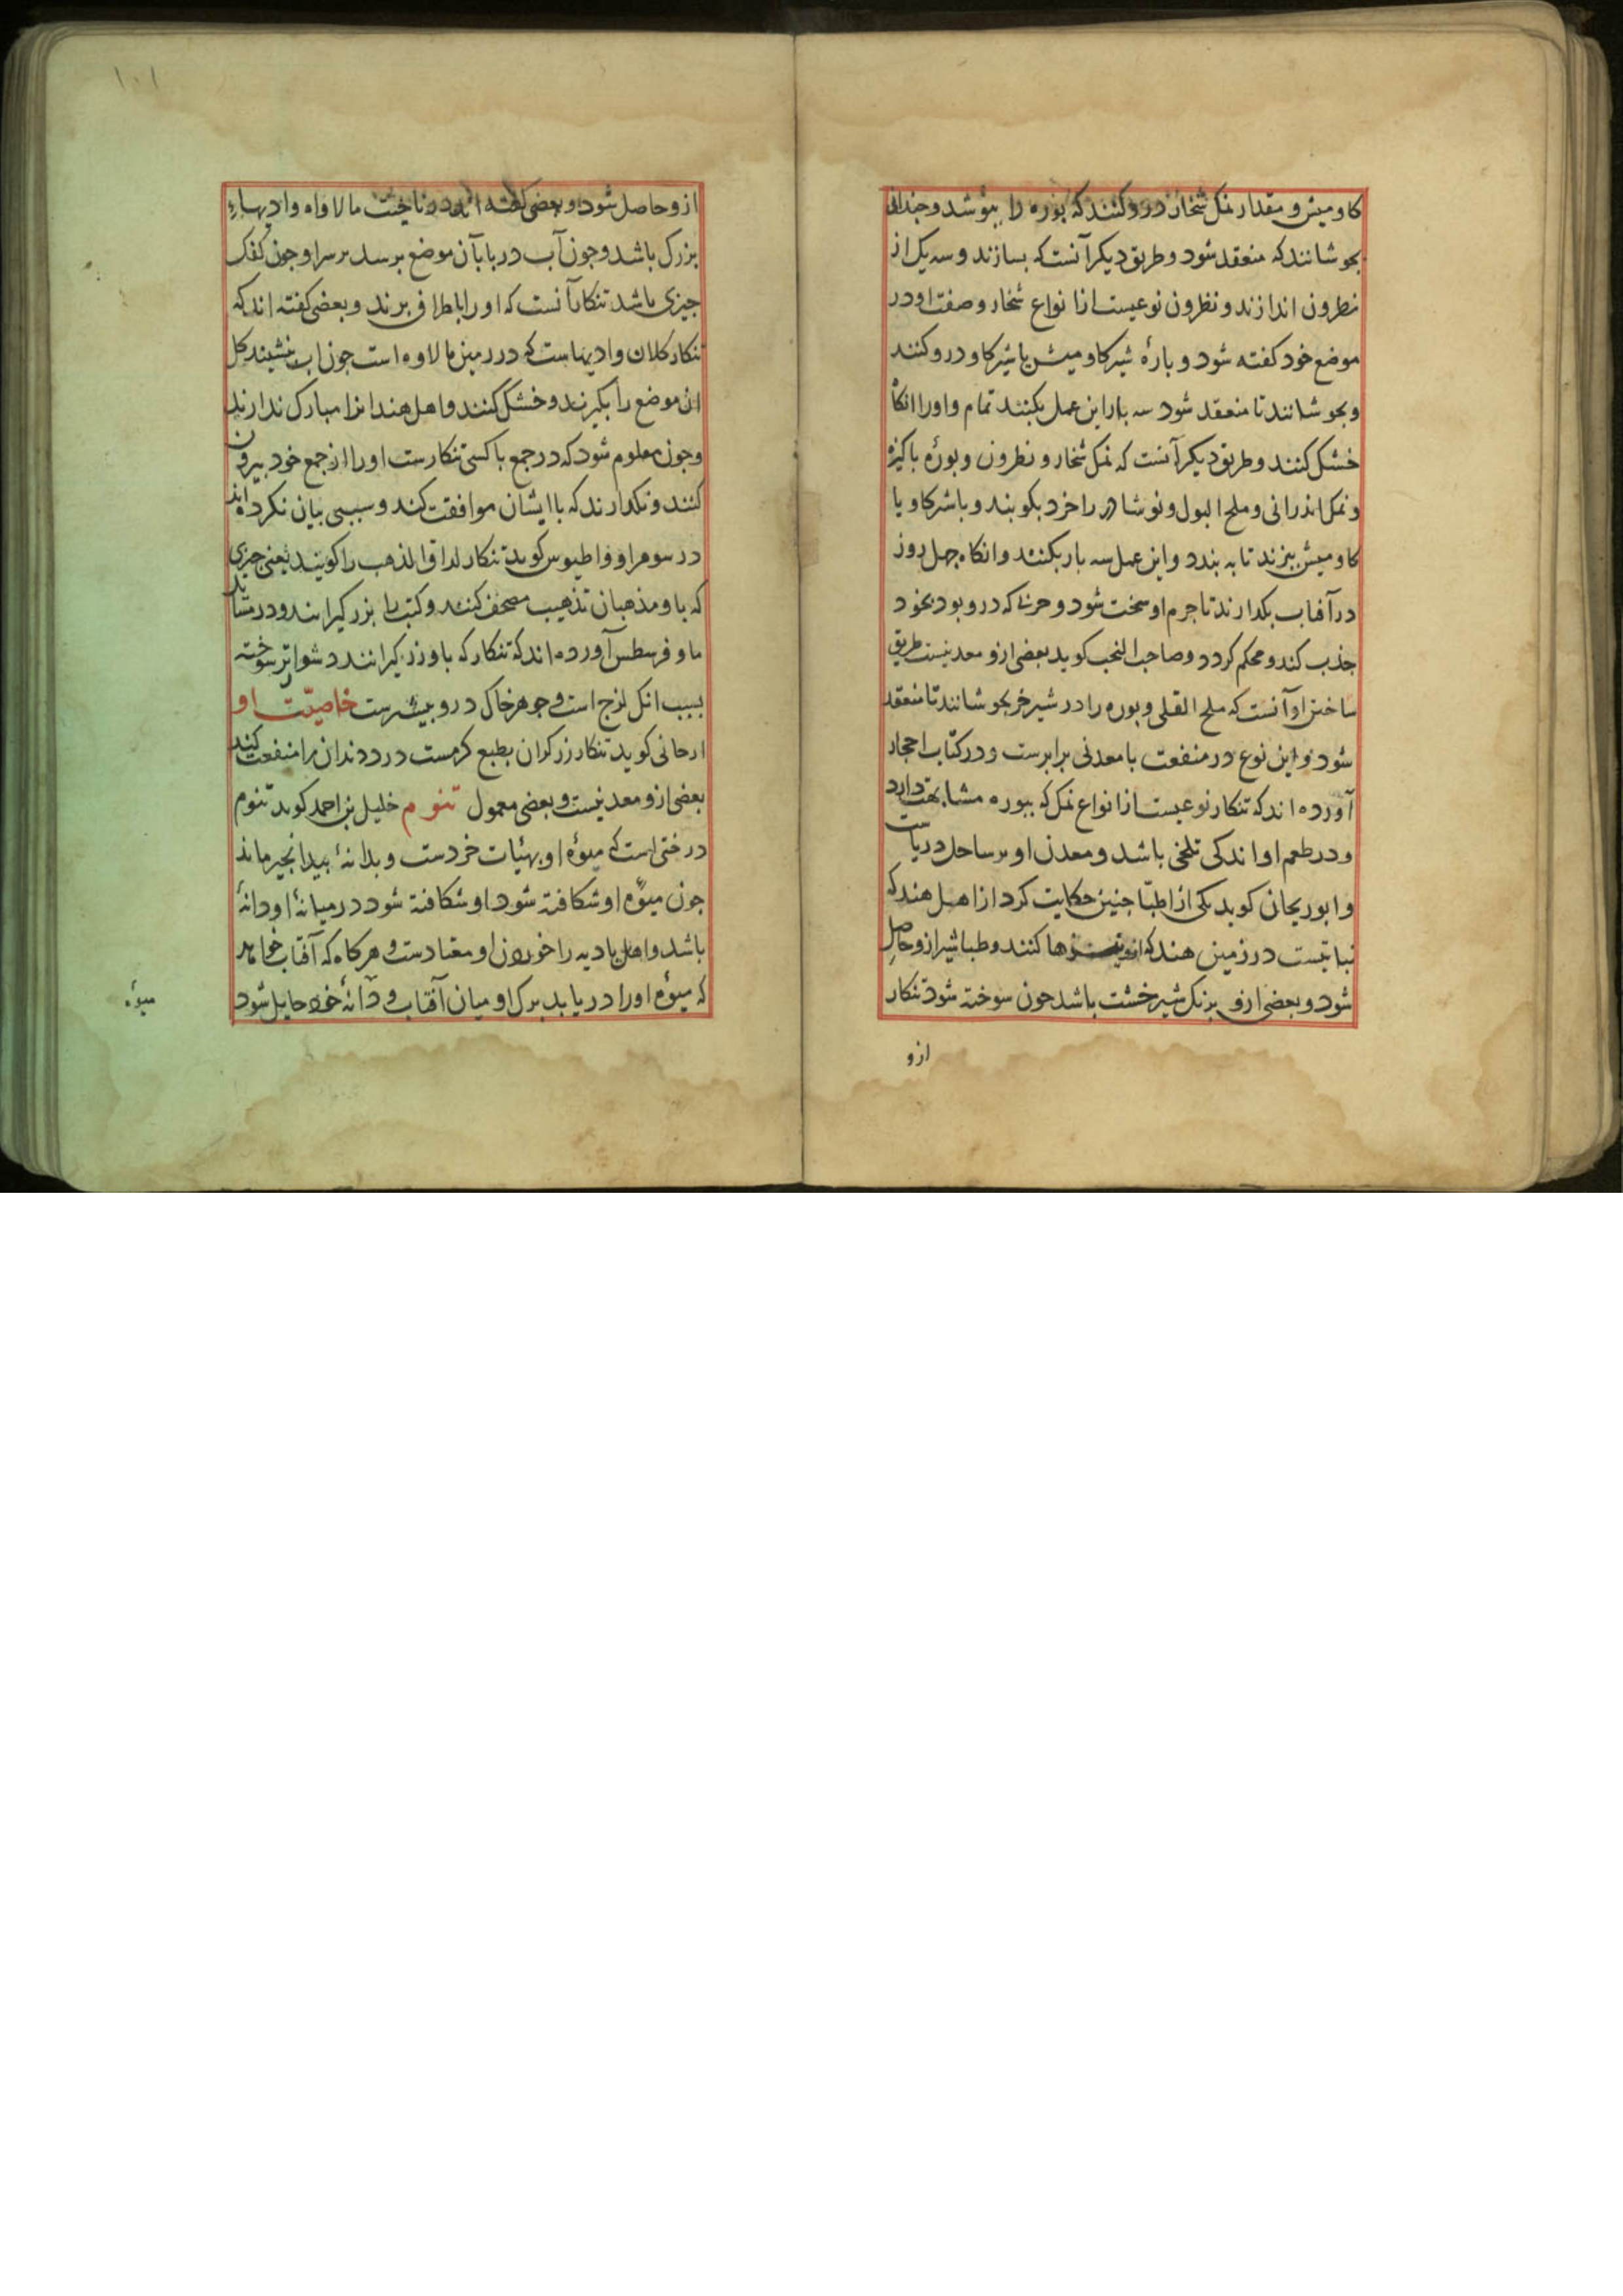 کاومیش و مقدار نمک شخار درو کنند که بوره را بپوشد و جندانی
بجوشانند که منعقد شود و طریق دیکر آنست که بسازند و سه یک از
نطرون اندازند و نطرون نوعیست از انواع شخار و صفت او در
موضع خود کفته شود و بارۀ شیر کاومیش یا شیر کاو درو کنند
و بجوشانند تا منعقد شود سه بار این عمل بکنند تمام و اورا انکاه
خشک کنند و طریق دیکر آنست که نمک شخار و نطرون و بورۀ باکیزه
و نمک اندرانی و ملح البول و نوشادر را خرد بکوبند و با شیر کاو یا
کاومیش ببزند تا به بندد و این عمل سه بار بکنند و انکاه جهل روز
در آفتاب بکدارند تا جرم او سخت شود و حرتی که درو بود بخود
جذب کند و محکم کردد و صاحب النخب کوید بعضی ازو معدنیست طریق
ساختن او آنست که ملح القلی و بوره را در شیر خر بجوشانند تا منعقد
شود و این نوع در منفعت با معدنی برابرست و در کتاب احجار
آورده اند که تنکار نوعیست از انواع نمک که ببوره مشابهت دارد
و در طعم او اندکی تلخی باشد و معدن او بر ساحل دریاست
و ابوریحان کوید یکی از اطبا جنین حکایت کرد از اهل هند که
نباتیست در زمین هند که ازو نیزها کنند و طباشیر ازو حاصل
شود و بعضی ازو برنک شیر خشت باشد جون سوخته شود تنکار
ازو
۱۰۱
ازو حاصل شود و بعضی کفته اند در ناحیت مالاواه وادیهاء
بزرک باشد و جون آب دریا بآن موضع برسد بر سر او جون کفک
جیزی باشد تنکار آنست که اورا باطراف برند و بعضی کفته اند که
تنکار کلان وادیهاست که در زمین مالاوه است جون اب بنشیند کل
ان موضع را بکیرند و خشک کنند و اهل هند انرا مبارک ندارند
و جون معلوم شود که در جمع با کسی تنکارست اورا از جمع خود بیرون
کنند و نکدارند که با ایشان موافقت کند و سببی بیان نکرده اند
در سومر اووفاطیوس کوید تنکار لداق الذهب را کویند یعنی جیزی
که باو مذهبان تذهیب مصحف کنند و کتب را بزر کیرانند و در
ماوفرسطس آورده اند که تنکار که باو زر کیرانند دشوارتر سوخته
بسبب انک لزج است و جوهر خاک درو بیشترست خاصیّت او
ارجانی کوید تنکار زرکران بطبع کرمست درد دندان را منفعت کند
بعضی ازو معدنیست و بعضی معمول تنوم خلیل بن احمد کوید تنوم
درختی است که میوۀ او بهیئات خردست و بدانۀ بیدانجیر ماند
جون میوۀ او شکافته شود او شکافته شود در میانۀ او دانۀ
باشد و اهل بادیه را خوردن او معتادست و هرکاه که آفتاب خواهد
که میوۀ اورا دریابد برک او میان آفتاب و دانۀ خود حایل شود
میوۀ